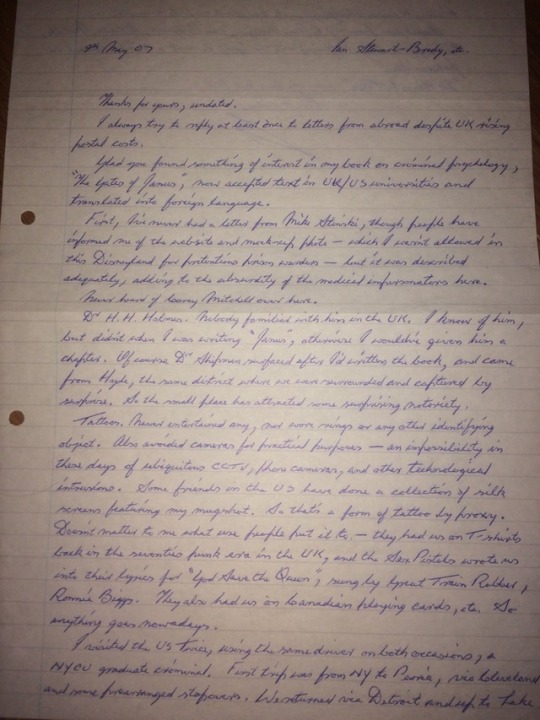 9th May 07 Ian Stewart-Brady, etc.
Thanks for yours, undated.
I always try to reply at least once to letters from abroad despite UK rising
postal costs.
Glad you found something of interest in my book on criminal psychology,
"The Gates of Janus", now accepted text in UK/US universities and
translated into foreign language.
First, I've never had a letter from Mike though people have
informed me of the website and mock-up photo — which I wasn't allowed in
this Disneyland for pretentious prison warders — but it was described
adequately, adding to the absurdity of the medical impersonators here.
Never hear of Mitchell over here.
Dr H.H. Holmes. Nobody familiar with him in the UK. I know of him,
but didn't when I was writing "Janus", otherwise I would've given him a
chapter. Of course Dr Shipman surfaced after I'd written the book, and came
from Hyde, the same district where we were surrounded and captured by
surprise. So the small place has attracted some surprising notoriety.
Tattoos. Never entertained any, nor wore rings or any other identifying
object. Also avoided cameras for practical purposes — an impossibility in
these days of ubiquitous CCTV, phone cameras, and other technological
intrusions. Some friends in the US have done a collection of silk
screens featuring my mugshot. So that's a form of tattoo by proxy.
Doesn't matter to me what use people put it to, — they had us on T-shirts
back in the seventies punk era in the UK, and the Sex Pistols wrote us
into their lyrics for "God Save the Queen", sung by Great Train Robber,
Ronnie Biggs. They also had us on Canadian playing cards, etc. So
anything goes nowadays.
I visited the US twice, using the same driver on both occasions, a
NYCU graduate criminal. First trip was from NY to Peoria, via Cleveland
and some prearranged stopovers. We returned via Detroit and up to Lake